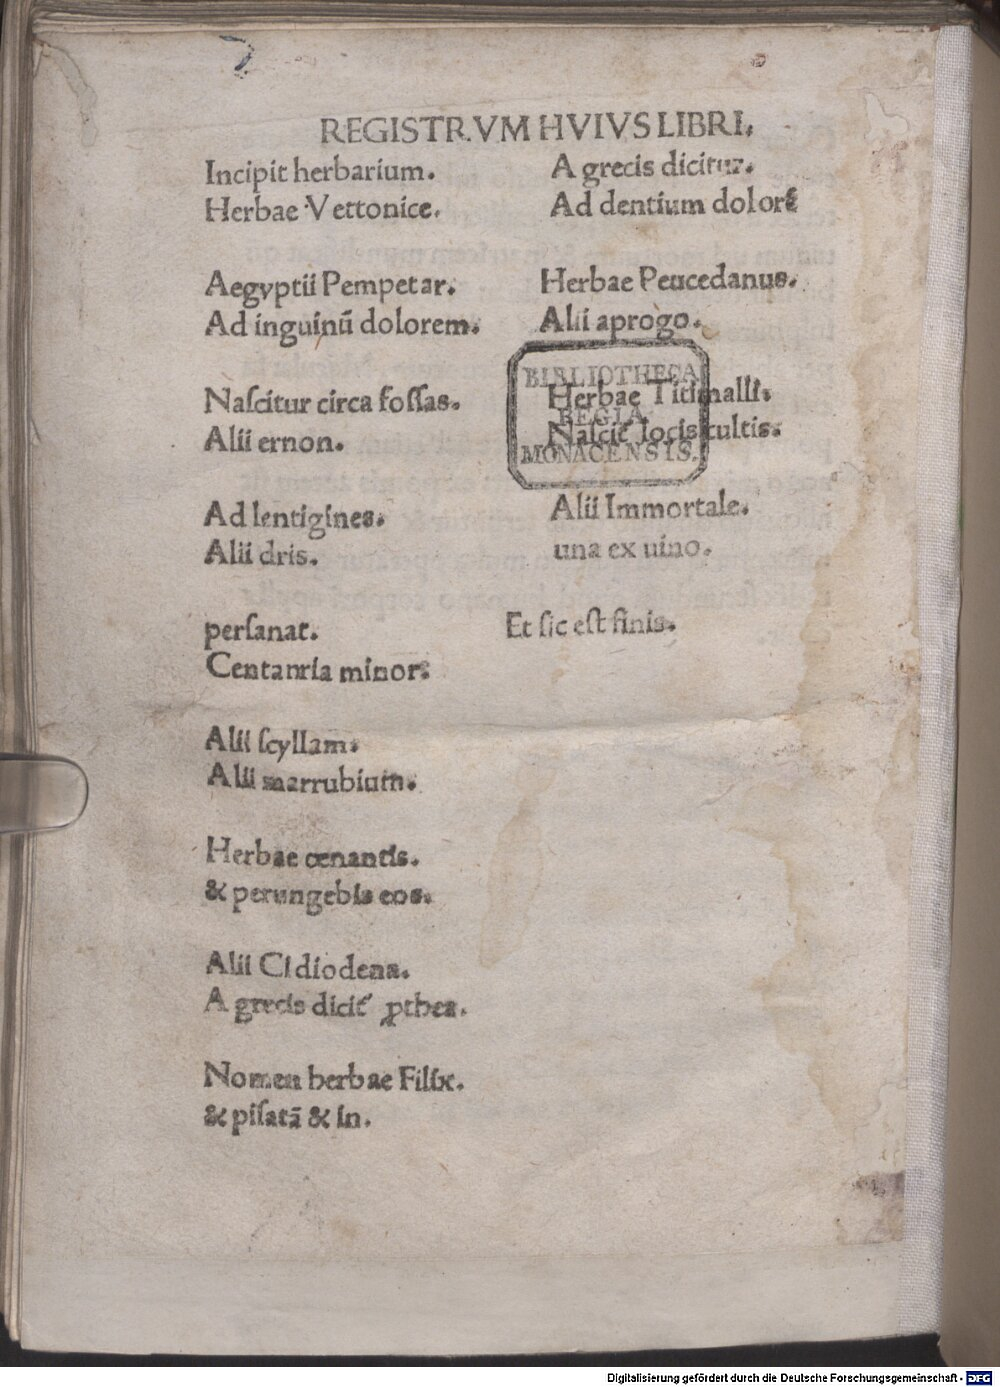 REGISTRVM HVIVS LIBRI.
Incipit herbarium.
Herbae Vettonice.
Aegyptii Pempetar.
Ad inguinū dolorem.
Naſcitur circa foſſas.
Alii ernon.
Ad lentigines.
Alii dris.
perſanat.
Centanria minor.
Alii ſcyllam.
Alii marrubium.
Herbae œnantis.
& perungebis eos.
Alii Cidiodena.
A grecis dicit̉
Nomen herbae Filix.
& piſatā & in.
A grecis dicitur.
Ad dentium dolorē
Herbae Peucedanus.
Alii aprogo.
Herbae Titimalli.
Naſcit̉ locis cultis.
Alii Immortale.
una ex uino.
Et ſic eſt finis.
BIBLIOTHECA
REGIA
MONACENSIS.
Digitalisierung gefördert durch die Deutsche Forschungsgemeinschaft - DFG